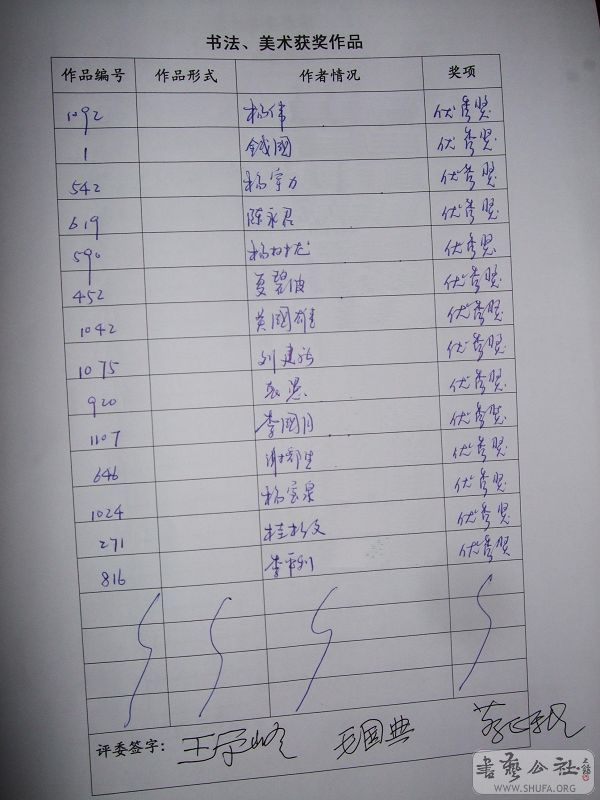 书法、美术获奖作品
作品编号 作品形式 作者情况 奖项
1092 杨伟 优秀奖
1 钱国 优秀奖
542 杨学力 优秀奖
619 陈永君 优秀奖
590 杨树龙 优秀奖
452 夏碧波 优秀奖
1042 黄国雄 优秀奖
1075 刘建 优秀奖
920 优秀奖
1107 李国 优秀奖
646 谢 生 优秀奖
1024 杨宝泉 优秀奖
271 桂 文 优秀奖
816 李 优秀奖
评委签字: 王学岭 毛国典
書藝公社
WWW.SHUFA.ORG